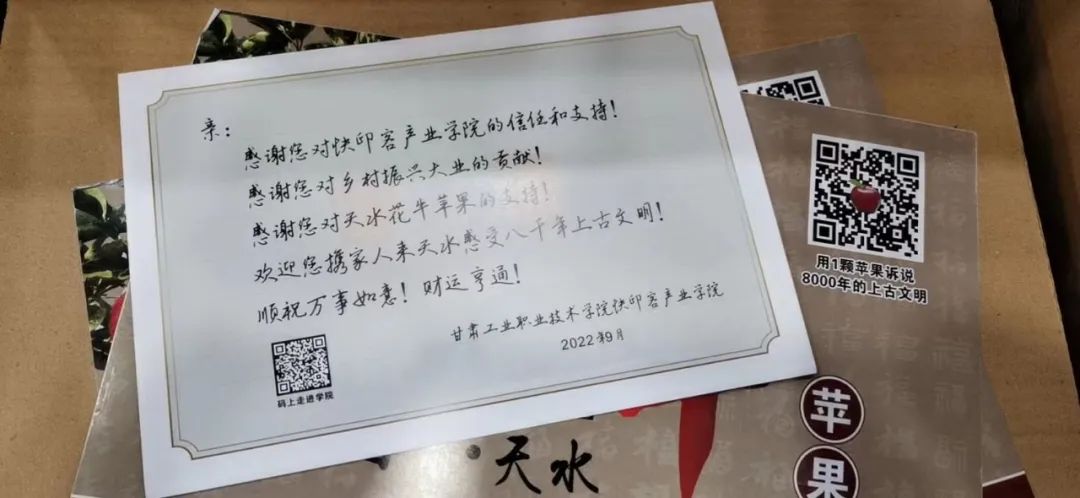 亲：
感谢您对快印客产业学院的信任和支持！
感谢您对乡村振兴大业的贡献！
感谢您对天水花牛苹果的支持！
欢迎您携家人来天水感受八千年上古文明！
顺祝万事如意！财运亨通！
甘肃工业职业技术学院快印客产业学院
2022年9月
码上走进学院
用1颗苹果诉说
8000年的上古文明
苹果
天水